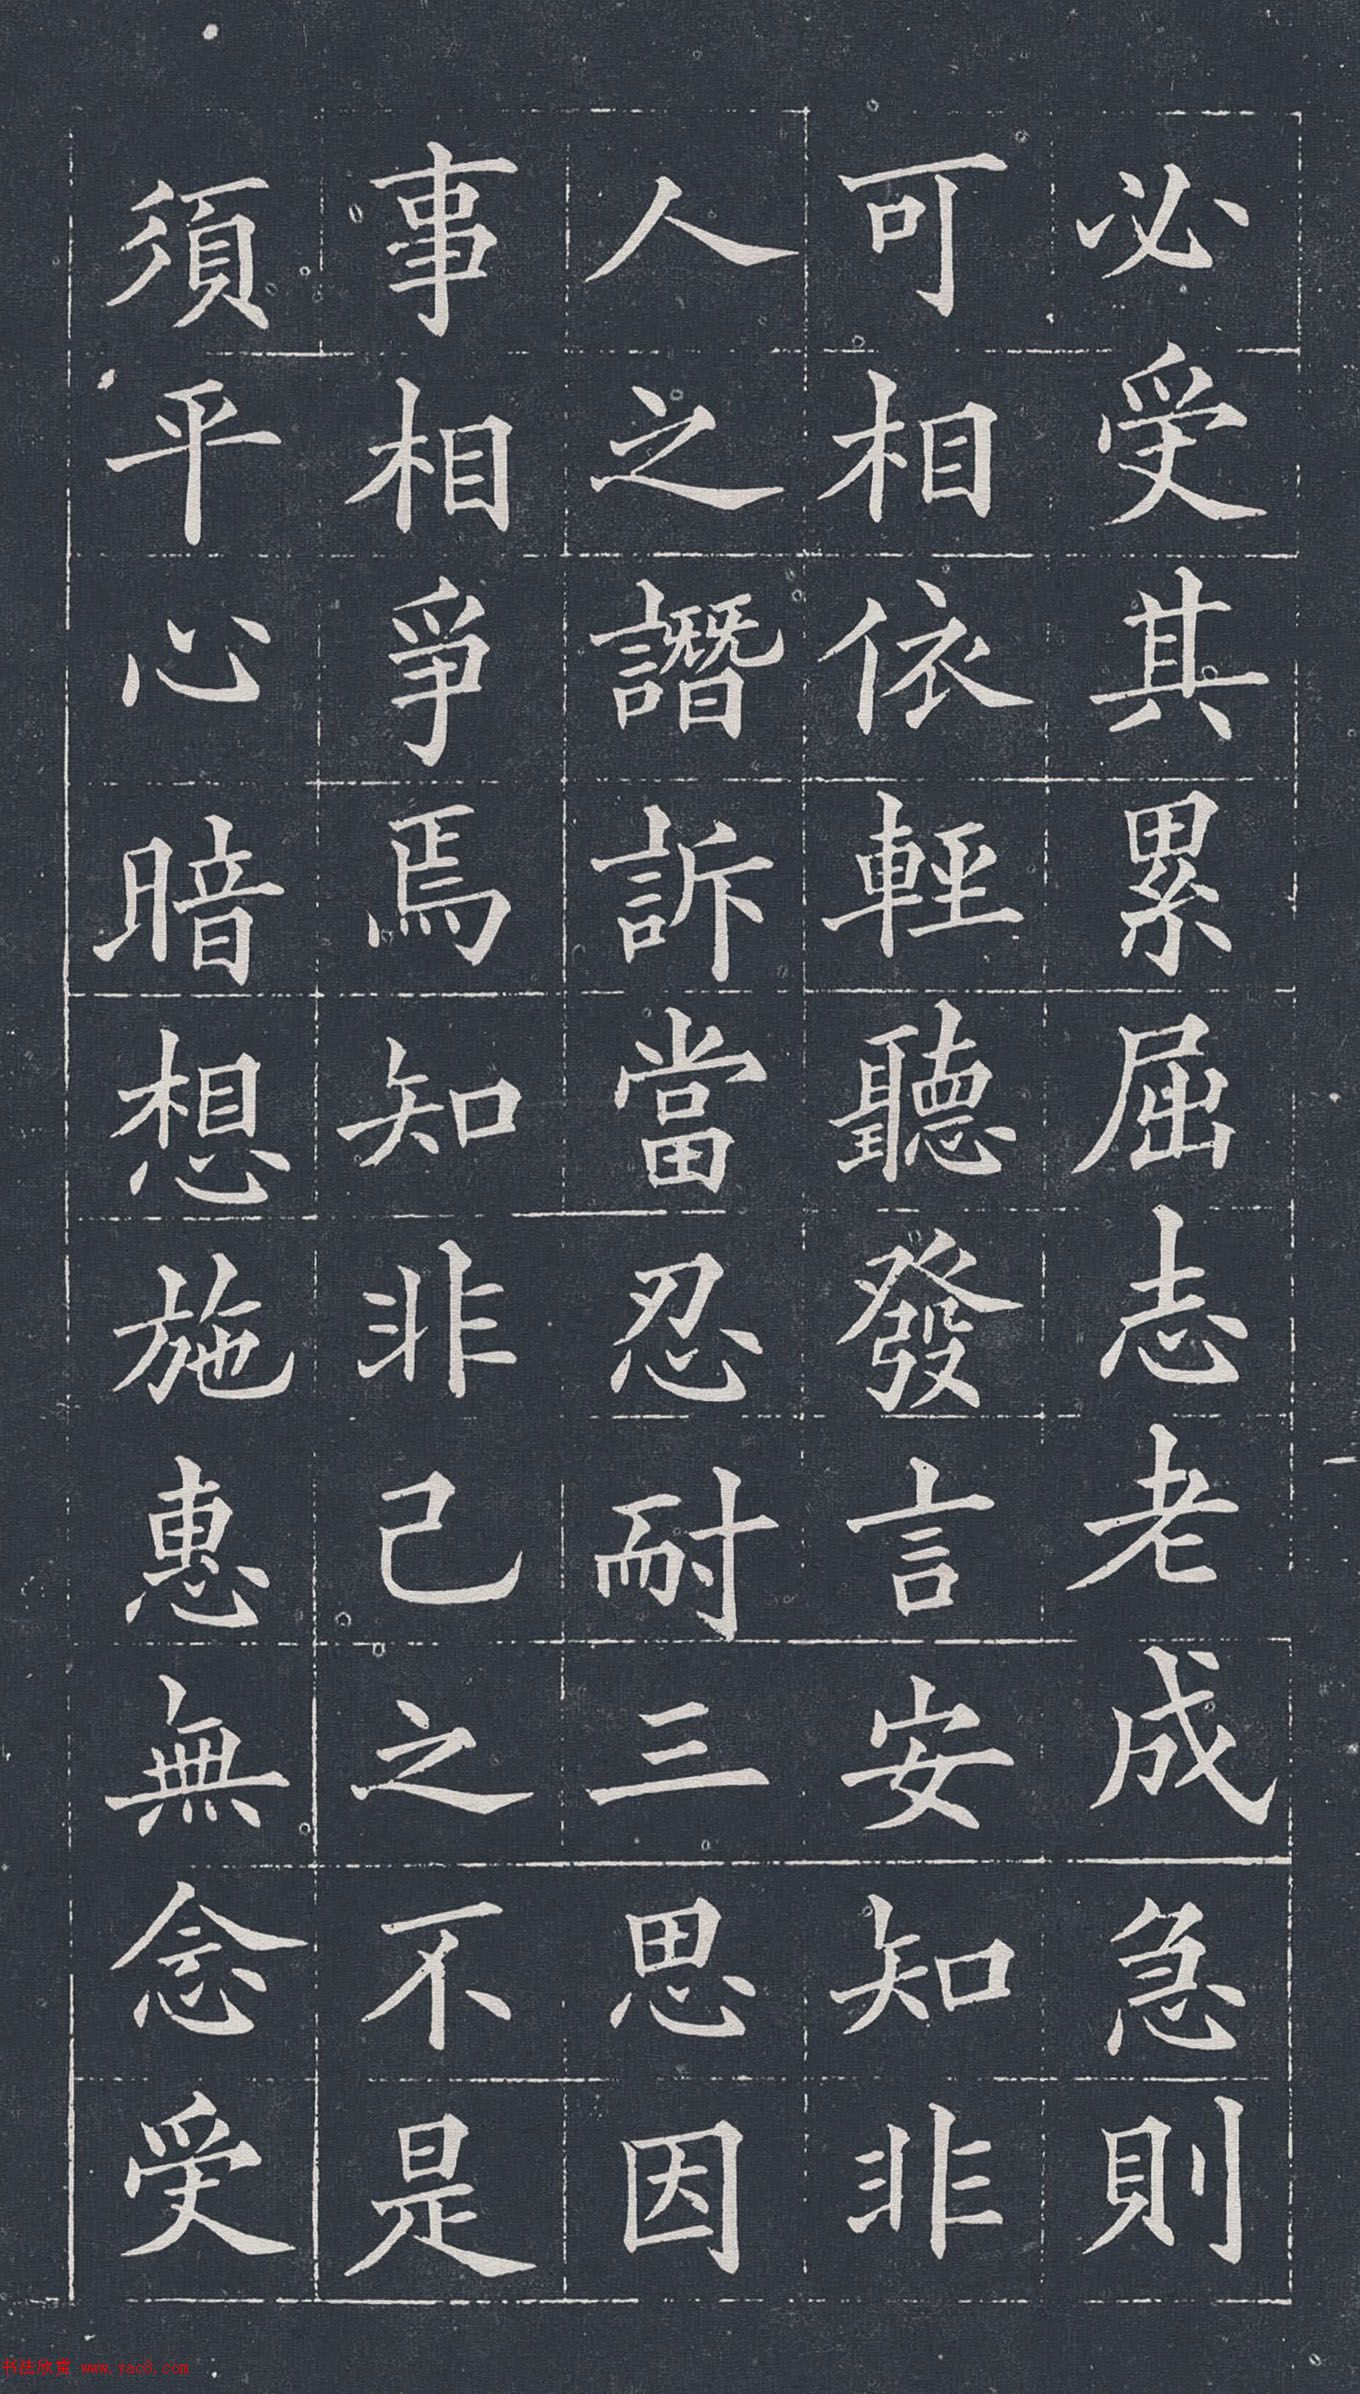 必受其累屈志老成急則
可相依輕聽發言安知非
人之譖訴當忍耐三思因
事相爭焉知非己之不是
須平心暗想施惠無念受
书法欣赏 www.yac8.com